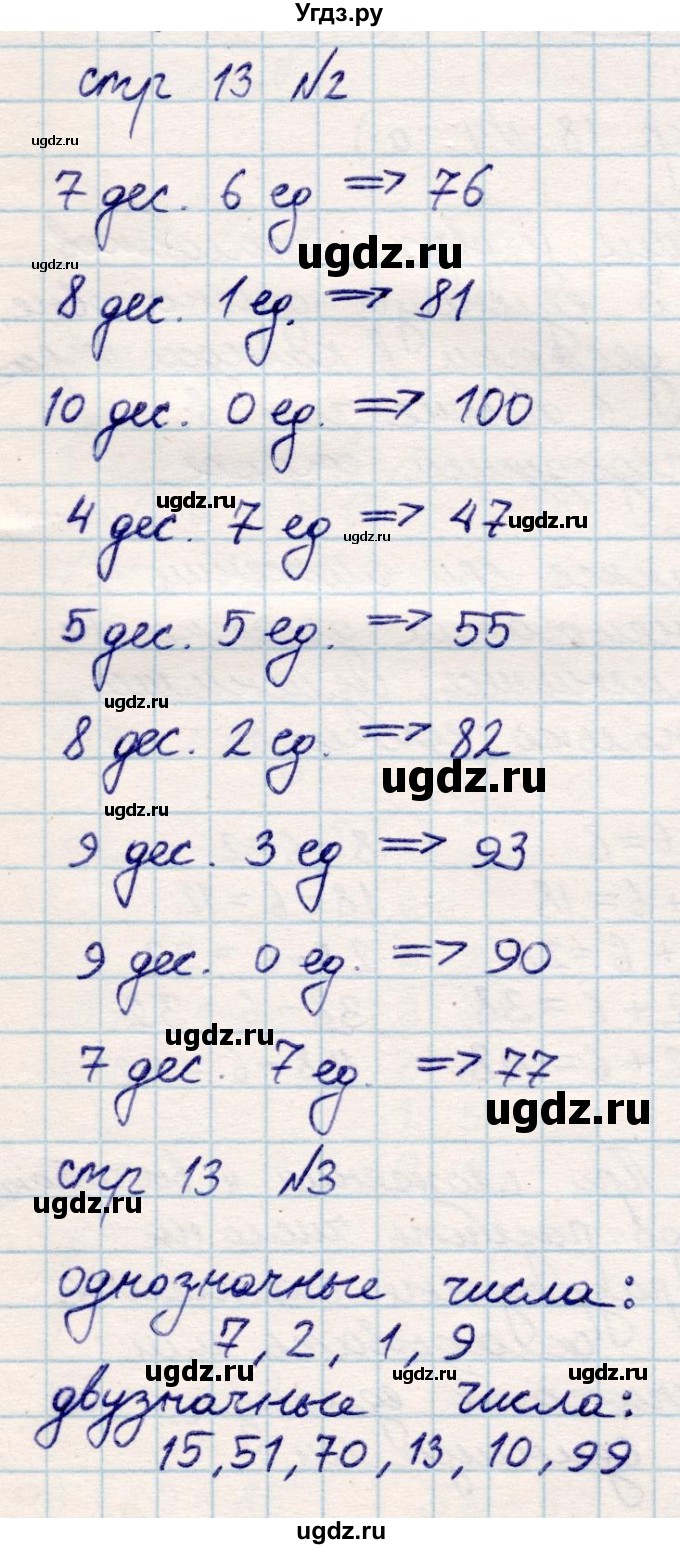 Угдз.ру
стр 13 №2
ugdz.ru
7 дес. 6 ед => 76
ugdz.ru
ugdz.ru
8 дес. 1 ед. => 81
10 дес. 0 ед. => 100
ugdz.ru
4 дес. 7 ед => 47
ugdz.ru
ugdz.ru
5 дес. 5 ед. => 55
ugdz.ru
8 дес. 2 ед. => 82
ugdz.ru
ugdz.ru
9 дес. 3 ед => 93
9 дес. 0 ед. => 90
ugdz.ru
7 дес. 7 ед. => 77
ugdz.ru
стр 13 №3
ugdz.ru
однозначные числа:
7, 2, 1, 9
ugdz.ru
ugdz.ru
ugdz.ru
двузначные числа:
15, 51, 70, 13, 10, 99
ugdz.ru